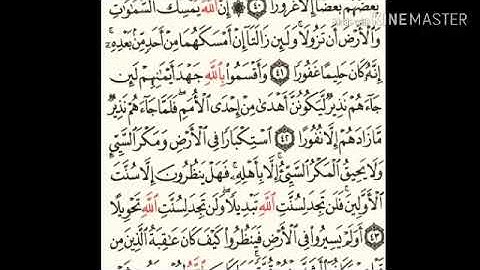 بَعْضُهُم بَعْضًا إِلَّا غُرُورًا ٤٠ ۞ إِنَّ ٱللَّهَ يُمْسِكُ ٱلسَّمَٰوَٰتِ
KINEMASTER
وَٱلْأَرْضَ أَن تَزُولَا ۚ وَلَئِن زَالَتَآ إِنْ أَمْسَكَهُمَا مِنْ أَحَدٍ مِّنۢ بَعْدِهِۦٓ ۚ
إِنَّهُۥ كَانَ حَلِيمًا غَفُورًا ٤١ وَأَقْسَمُوا۟ بِٱللَّهِ جَهْدَ أَيْمَٰنِهِمْ لَئِن
جَآءَهُمْ نَذِيرٌ لَّيَكُونُنَّ أَهْدَىٰ مِنْ إِحْدَى ٱلْأُمَمِ ۖ فَلَمَّا جَآءَهُمْ نَذِيرٌ
مَّا زَادَهُمْ إِلَّا نُفُورًا ٤٢ ٱسْتِكْبَارًا فِى ٱلْأَرْضِ وَمَكْرَ ٱلسَّيِّئِ ۚ
وَلَا يَحِيقُ ٱلْمَكْرُ ٱلسَّيِّئُ إِلَّا بِأَهْلِهِۦ ۚ فَهَلْ يَنظُرُونَ إِلَّا سُنَّتَ
ٱلْأَوَّلِينَ ۚ فَلَن تَجِدَ لِسُنَّتِ ٱللَّهِ تَبْدِيلًا ۖ وَلَن تَجِدَ لِسُنَّتِ ٱللَّهِ تَحْوِيلًا
٤٣ أَوَلَمْ يَسِيرُوا۟ فِى ٱلْأَرْضِ فَيَنظُرُوا۟ كَيْفَ كَانَ عَٰقِبَةُ ٱلَّذِينَ مِن